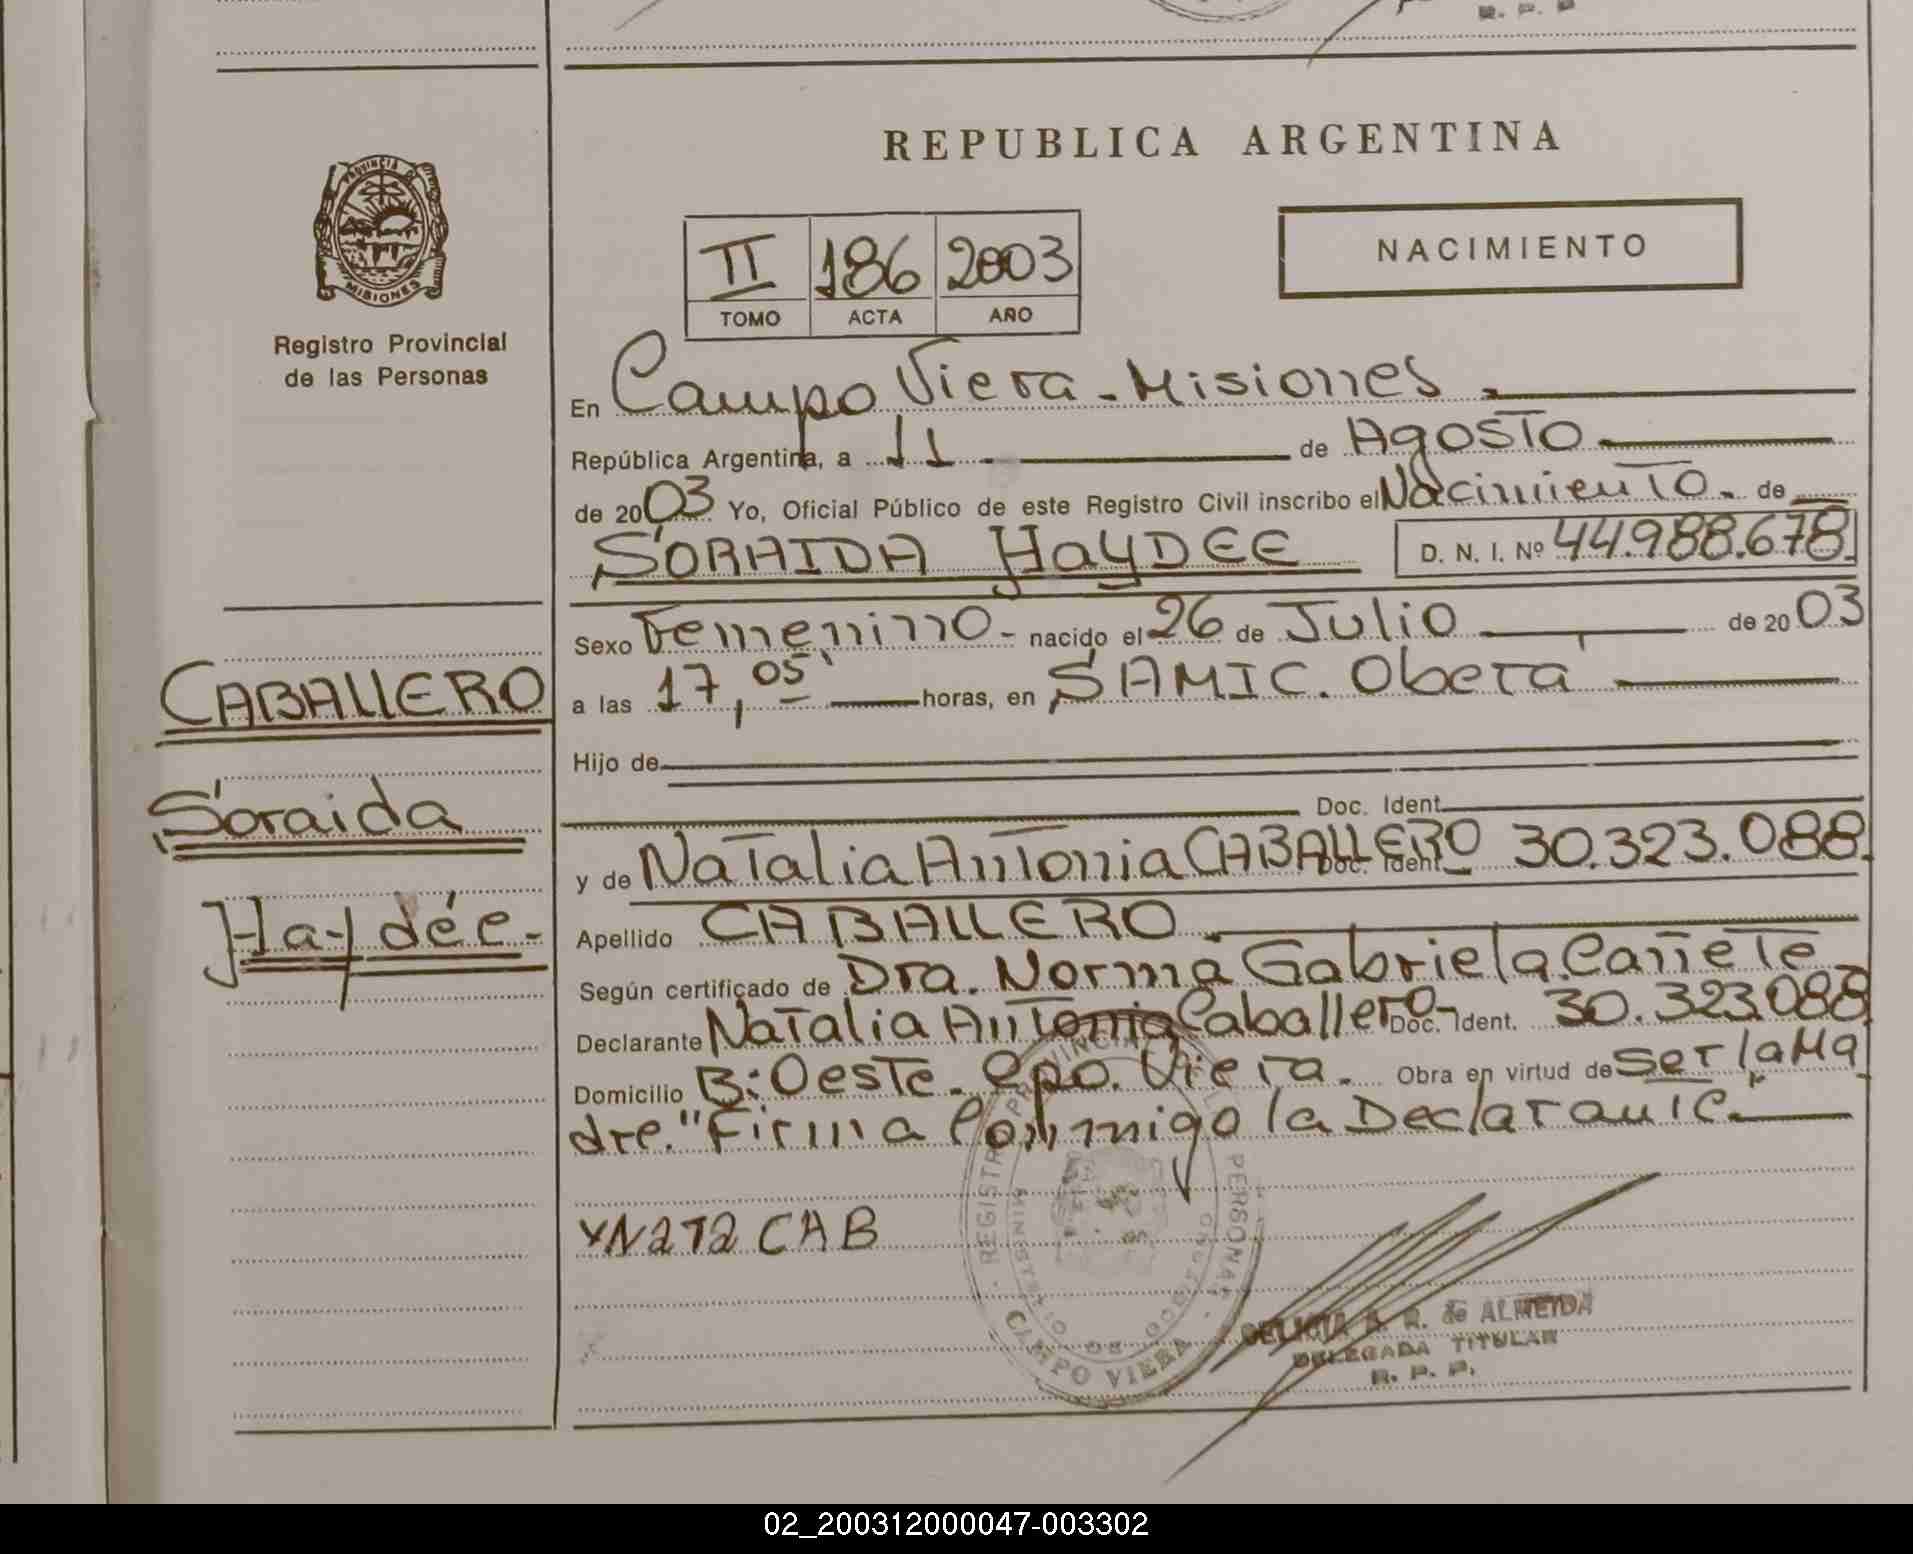 R. P. P
PROVINCIA DE
MISIONES
Registro Provincial
de las Personas
REPUBLICA ARGENTINA
NACIMIENTO
II 186 2003
TOMO ACTA AÑO
En Campo Viera - Misiones
República Argentina, a 11 de Agosto
de 2003 Yo, Oficial Público de este Registro Civil inscribo el Nacimiento. de
SORAIDA HaYDEE D. N. I. Nº 44.988.678.
Sexo Femenino - nacido el 26 de Julio de 2003
a las 17,05' horas, en SAMIC. Oberá
Hijo de
Doc. Ident.
y de Natalia Antonia CABALLERO Doc. Ident. 30.323.088.
Apellido CABALLERO
Según certificado de Dra. Norma Gabriela Cañete
Declarante Natalia Antonia Caballero Doc. Ident. 30.323.088
Domicilio B: Oeste - Cpo. Viera. Obra en virtud de ser la Ma
dre." Firma Conmigo la Declarante.
CABALLERO
Soraida
Haydée.
NATA CAB
REGISTRO PROVINCIAL PERSONAS
CAMPO VIERA
A. R. de ALMEIDA
DELEGADA TITULAR
R. P. P.
02_200312000047-003302